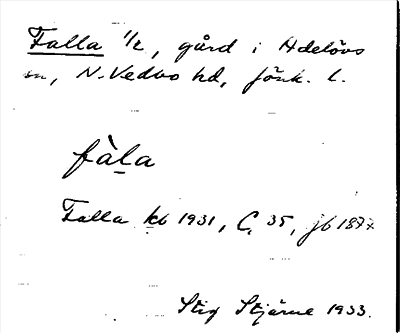 Falla 1/2, gård i Adelövs
sn, N. Vedbo hd, Jönk. l.
fàla
Falla kb 1931, C. 35, jb 1877.
Stig Stjärne 1933.